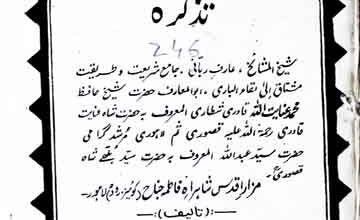 تذکرہ
246
شیخ المشائخ، عارف ربانی، جامع شریعت و طریقت
مشتاق الی لقاء الباری، ابو المعارف حضرت شیخ حافظ
محمد عنایت اللہ قادری شطاری المعروف بہ حضرت شاہ عنایت
قادری رحمۃ اللہ علیہ قصوری ثم لاہوری مرشد گرامی
حضرت سید عبداللہ المعروف بہ حضرت سید بلھے شاہ
قصوریؒ
مزار اقدس شاہراہ فاطمہ جناح (کوئینز روڈ) لاہور۔
(تالیف):